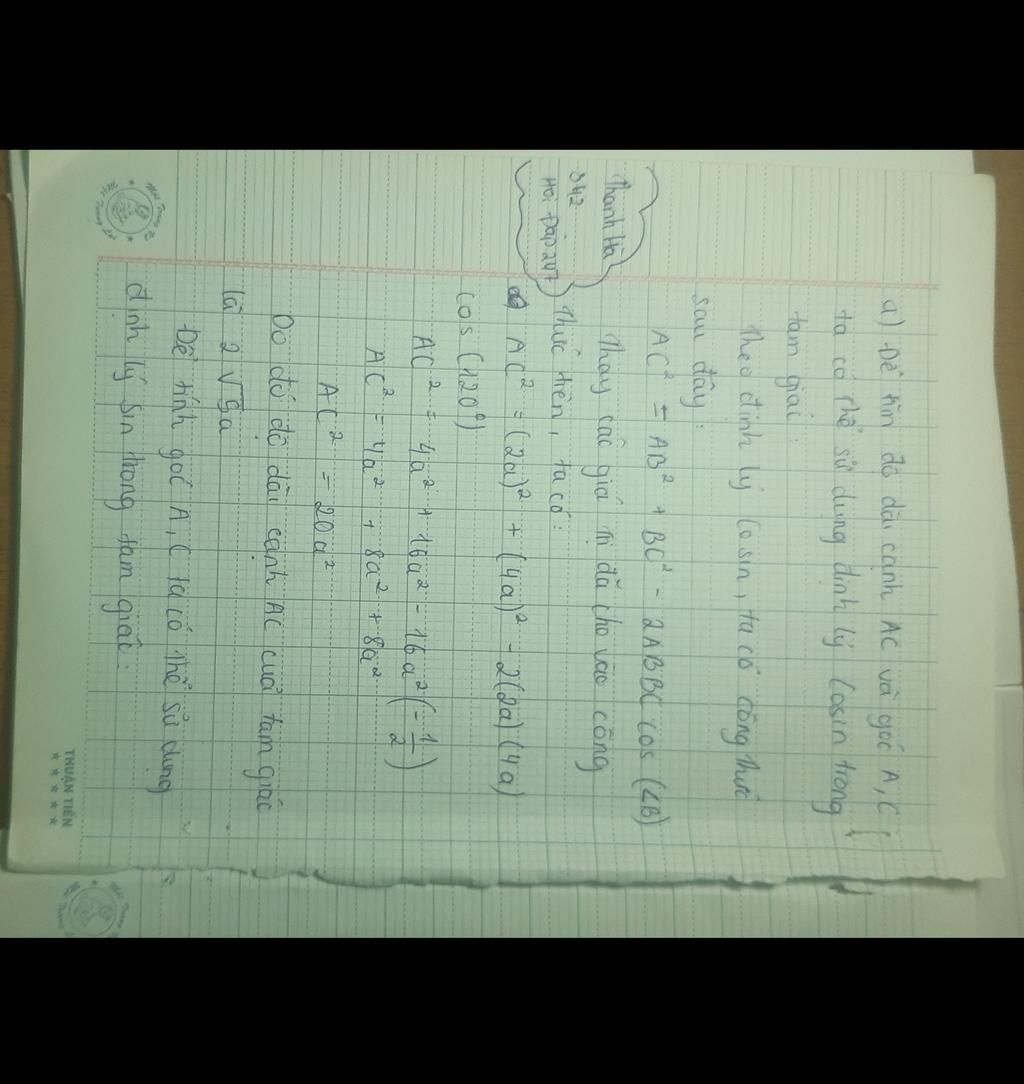 a) Để tìm độ dài cạnh AC và góc A, C
ta có thể sử dụng định lý Cosin trong
tam giác:
Theo định lý Cosin, ta có công thức
sau đây:
AC² = AB² + BC² - 2ABBC cos (∠B)
Thay các giá trị đã cho vào công
Thanh Hà
342
Hỏi Đáp 247
thức trên, ta có:
AC² = (2a)² + (4a)² - 2(2a)(4a)
cos (120°)
AC² = 4a² + 16a² - 16a² (-1/2)
AC² = 4a² + 8a² + 8a²
AC² = 20a²
Do đó độ dài cạnh AC của tam giác
là 2√5a
Để tính góc A, C ta có thể sử dụng
định lý sin trong tam giác:
THUẬN TIẾN